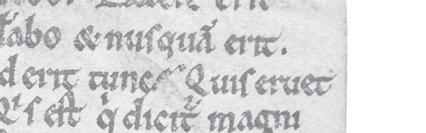 erit
labo & nusquā erit.
d erit tunc Quis eruet
Q's est q̇ dicit magni